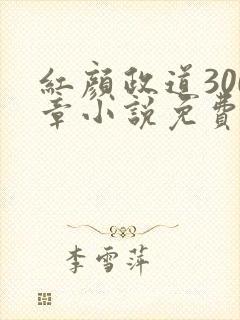 紅顏政道300
章小說免費
李雪萍